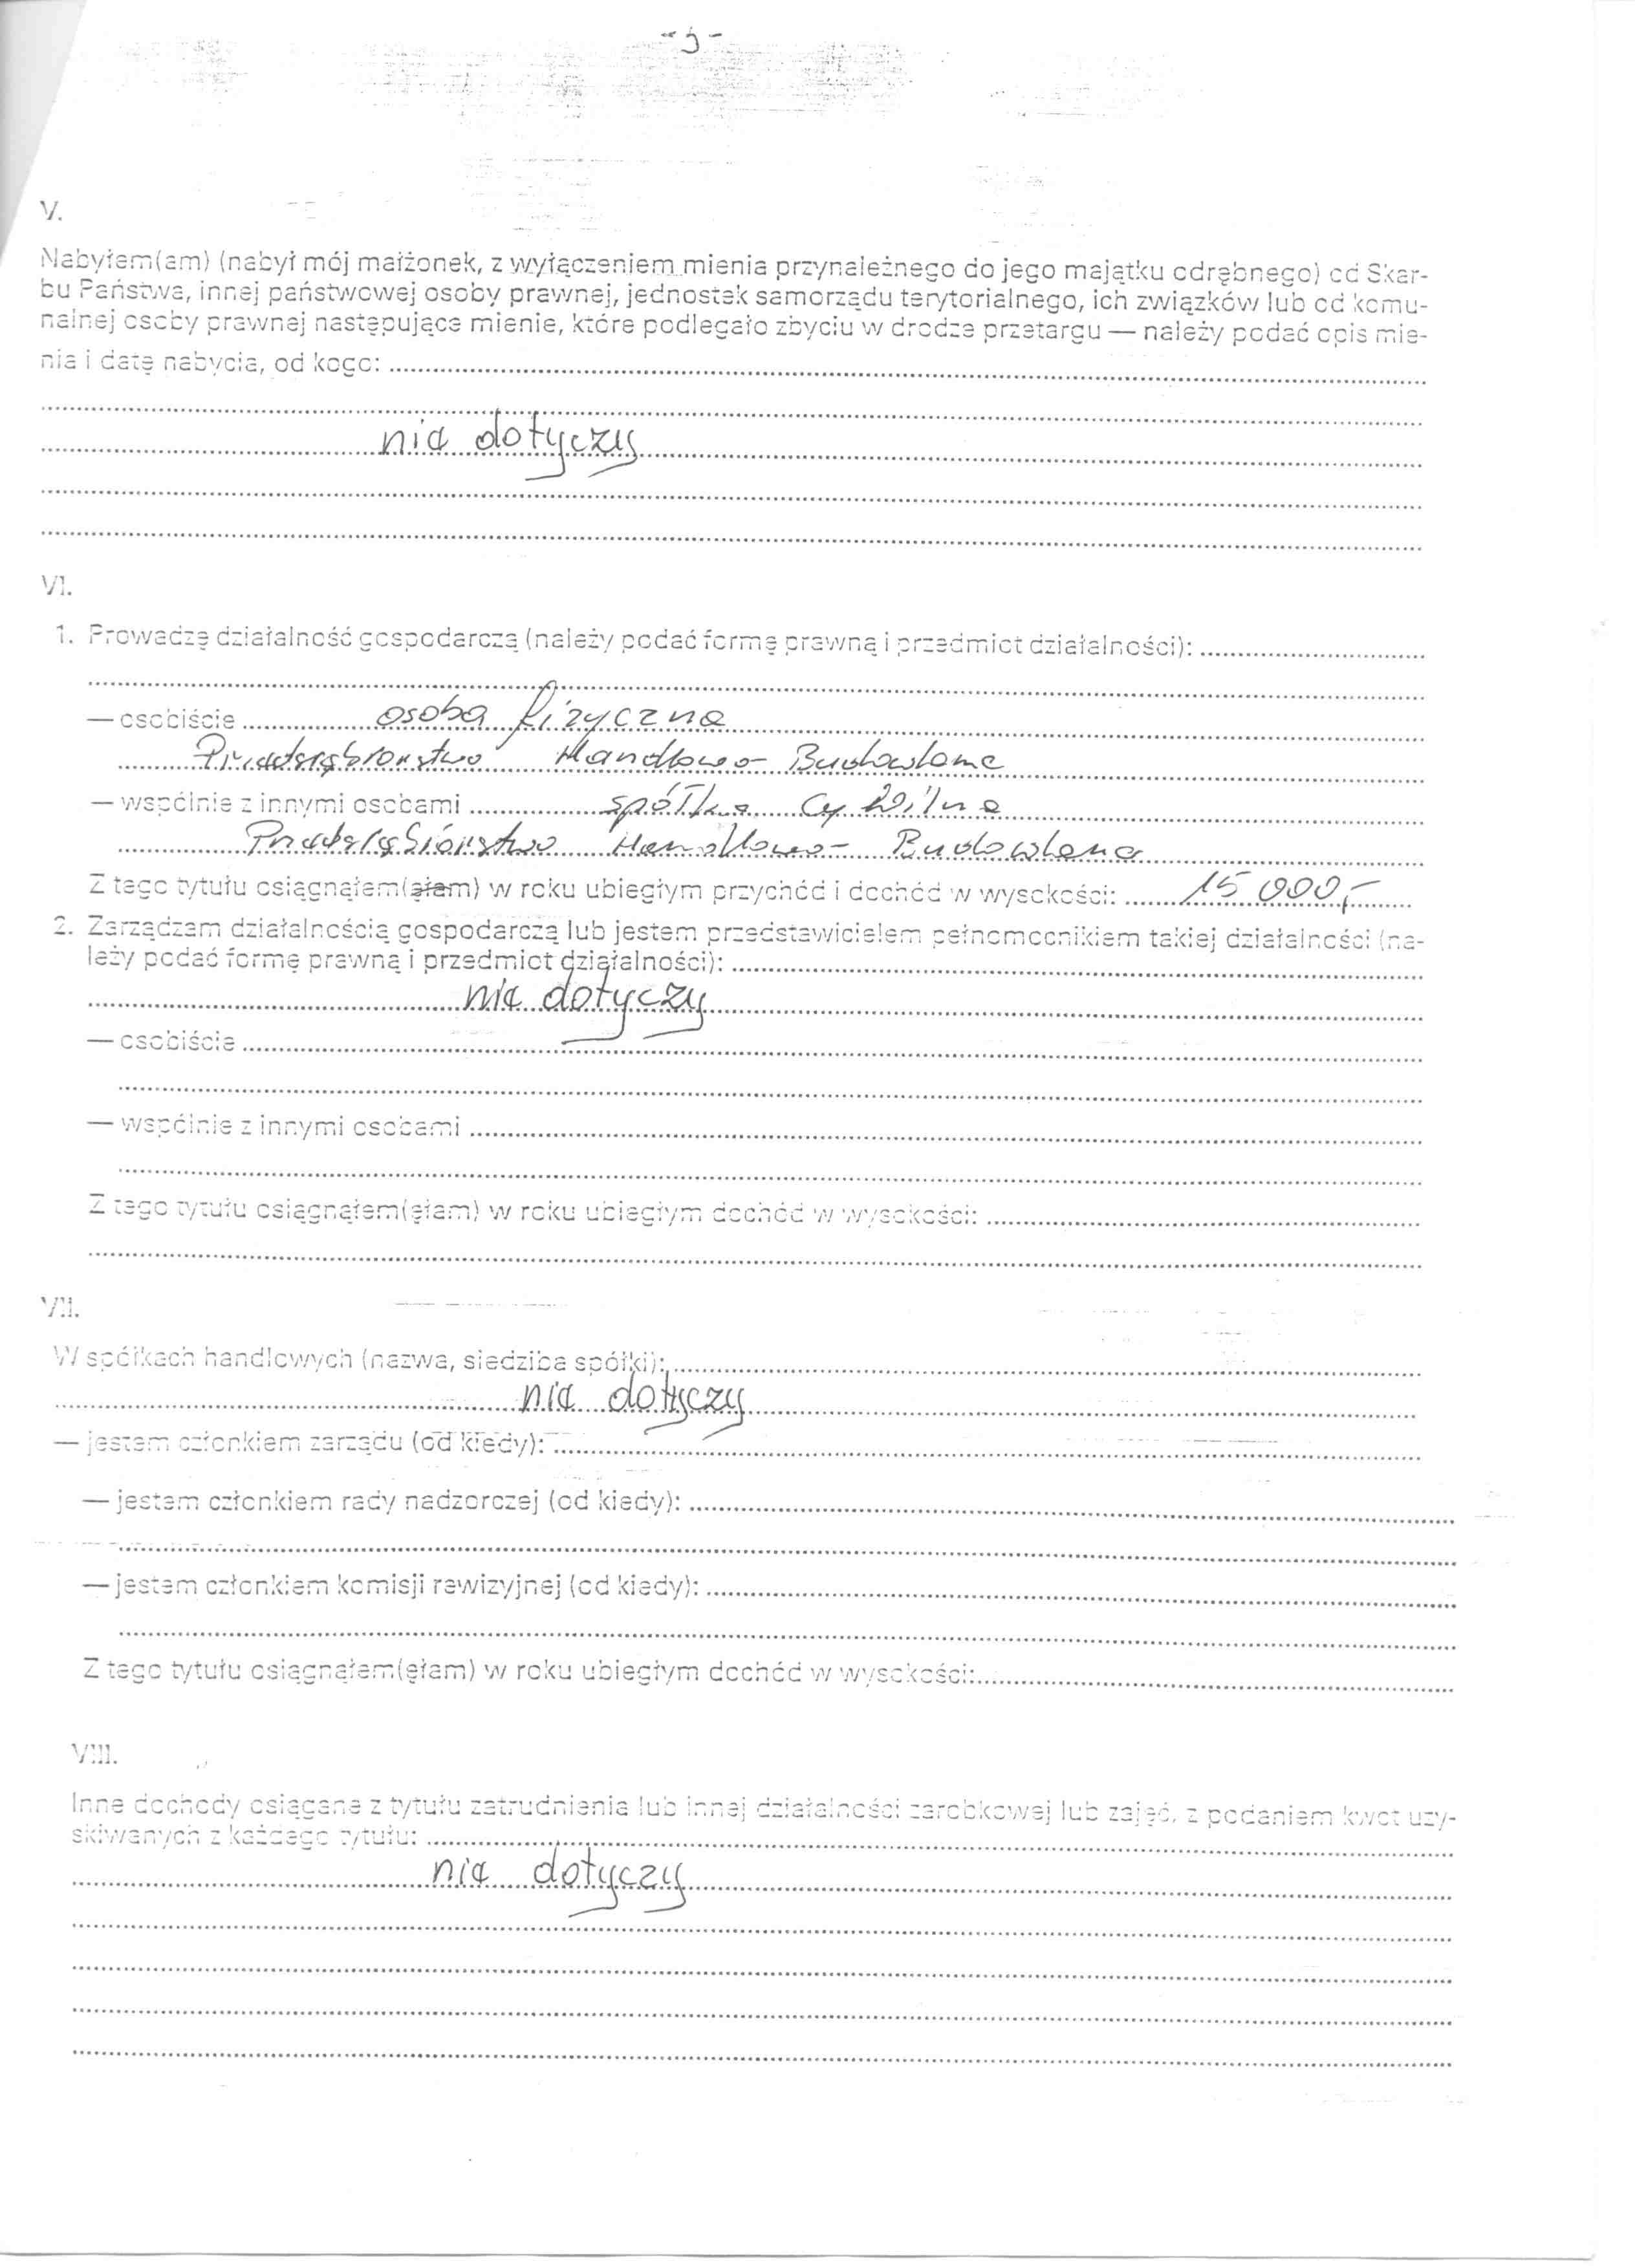 - 3 -
V.
Nabyłem(am) (nabył mój małżonek, z wyłączeniem mienia przynależnego do jego majątku odrębnego) od Skar-
bu Państwa, innej państwowej osoby prawnej, jednostek samorządu terytorialnego, ich związków lub od komu-
nalnej osoby prawnej następujące mienie, które podlegało zbyciu w drodze przetargu — należy podać opis mie-
nia i datę nabycia, od kogo:
nie dotyczy
VI.
1. Prowadzę działalność gospodarczą (należy podać formę prawną i przedmiot działalności):
— osobiście osoba fizyczna
Przedsiębiorstwo Handlowo - Budowlane
— wspólnie z innymi osobami spółka cywilna
Przedsiębiorstwo Handlowo - Budowlane
Z tego tytułu osiągnąłem(ęłam) w roku ubiegłym przychód i dochód w wysokości: 15 000,-
2. Zarządzam działalnością gospodarczą lub jestem przedstawicielem pełnomocnikiem takiej działalności (na-
leży podać formę prawną i przedmiot działalności):
nie dotyczy
— osobiście
— wspólnie z innymi osobami
Z tego tytułu osiągnąłem(ęłam) w roku ubiegłym dochód w wysokości:
VII.
W spółkach handlowych (nazwa, siedziba spółki):
nie dotyczy
— jestem członkiem zarządu (od kiedy):
— jestem członkiem rady nadzorczej (od kiedy):
— jestem członkiem komisji rewizyjnej (od kiedy):
Z tego tytułu osiągnąłem(ęłam) w roku ubiegłym dochód w wysokości:
VIII.
Inne dochody osiągane z tytułu zatrudnienia lub innej działalności zarobkowej lub zajęć, z podaniem kwot uzy-
skiwanych z każdego tytułu:
nie dotyczy